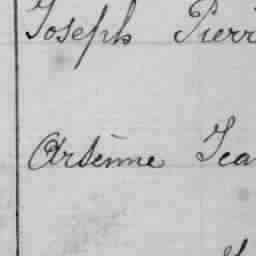 Joseph Pierr
Arsènne Jea